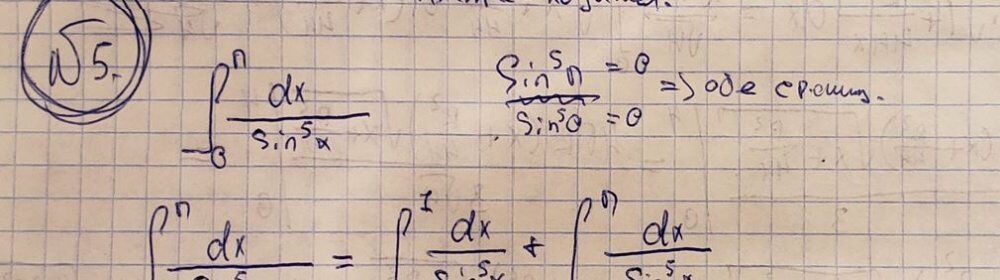 №5.
∫₀^π dx / sin⁵x
sin⁵π = 0
sin⁵0 = 0 => обе
∫^π dx / = ∫^1 dx / sin⁵x + ∫^π dx / sin⁵x